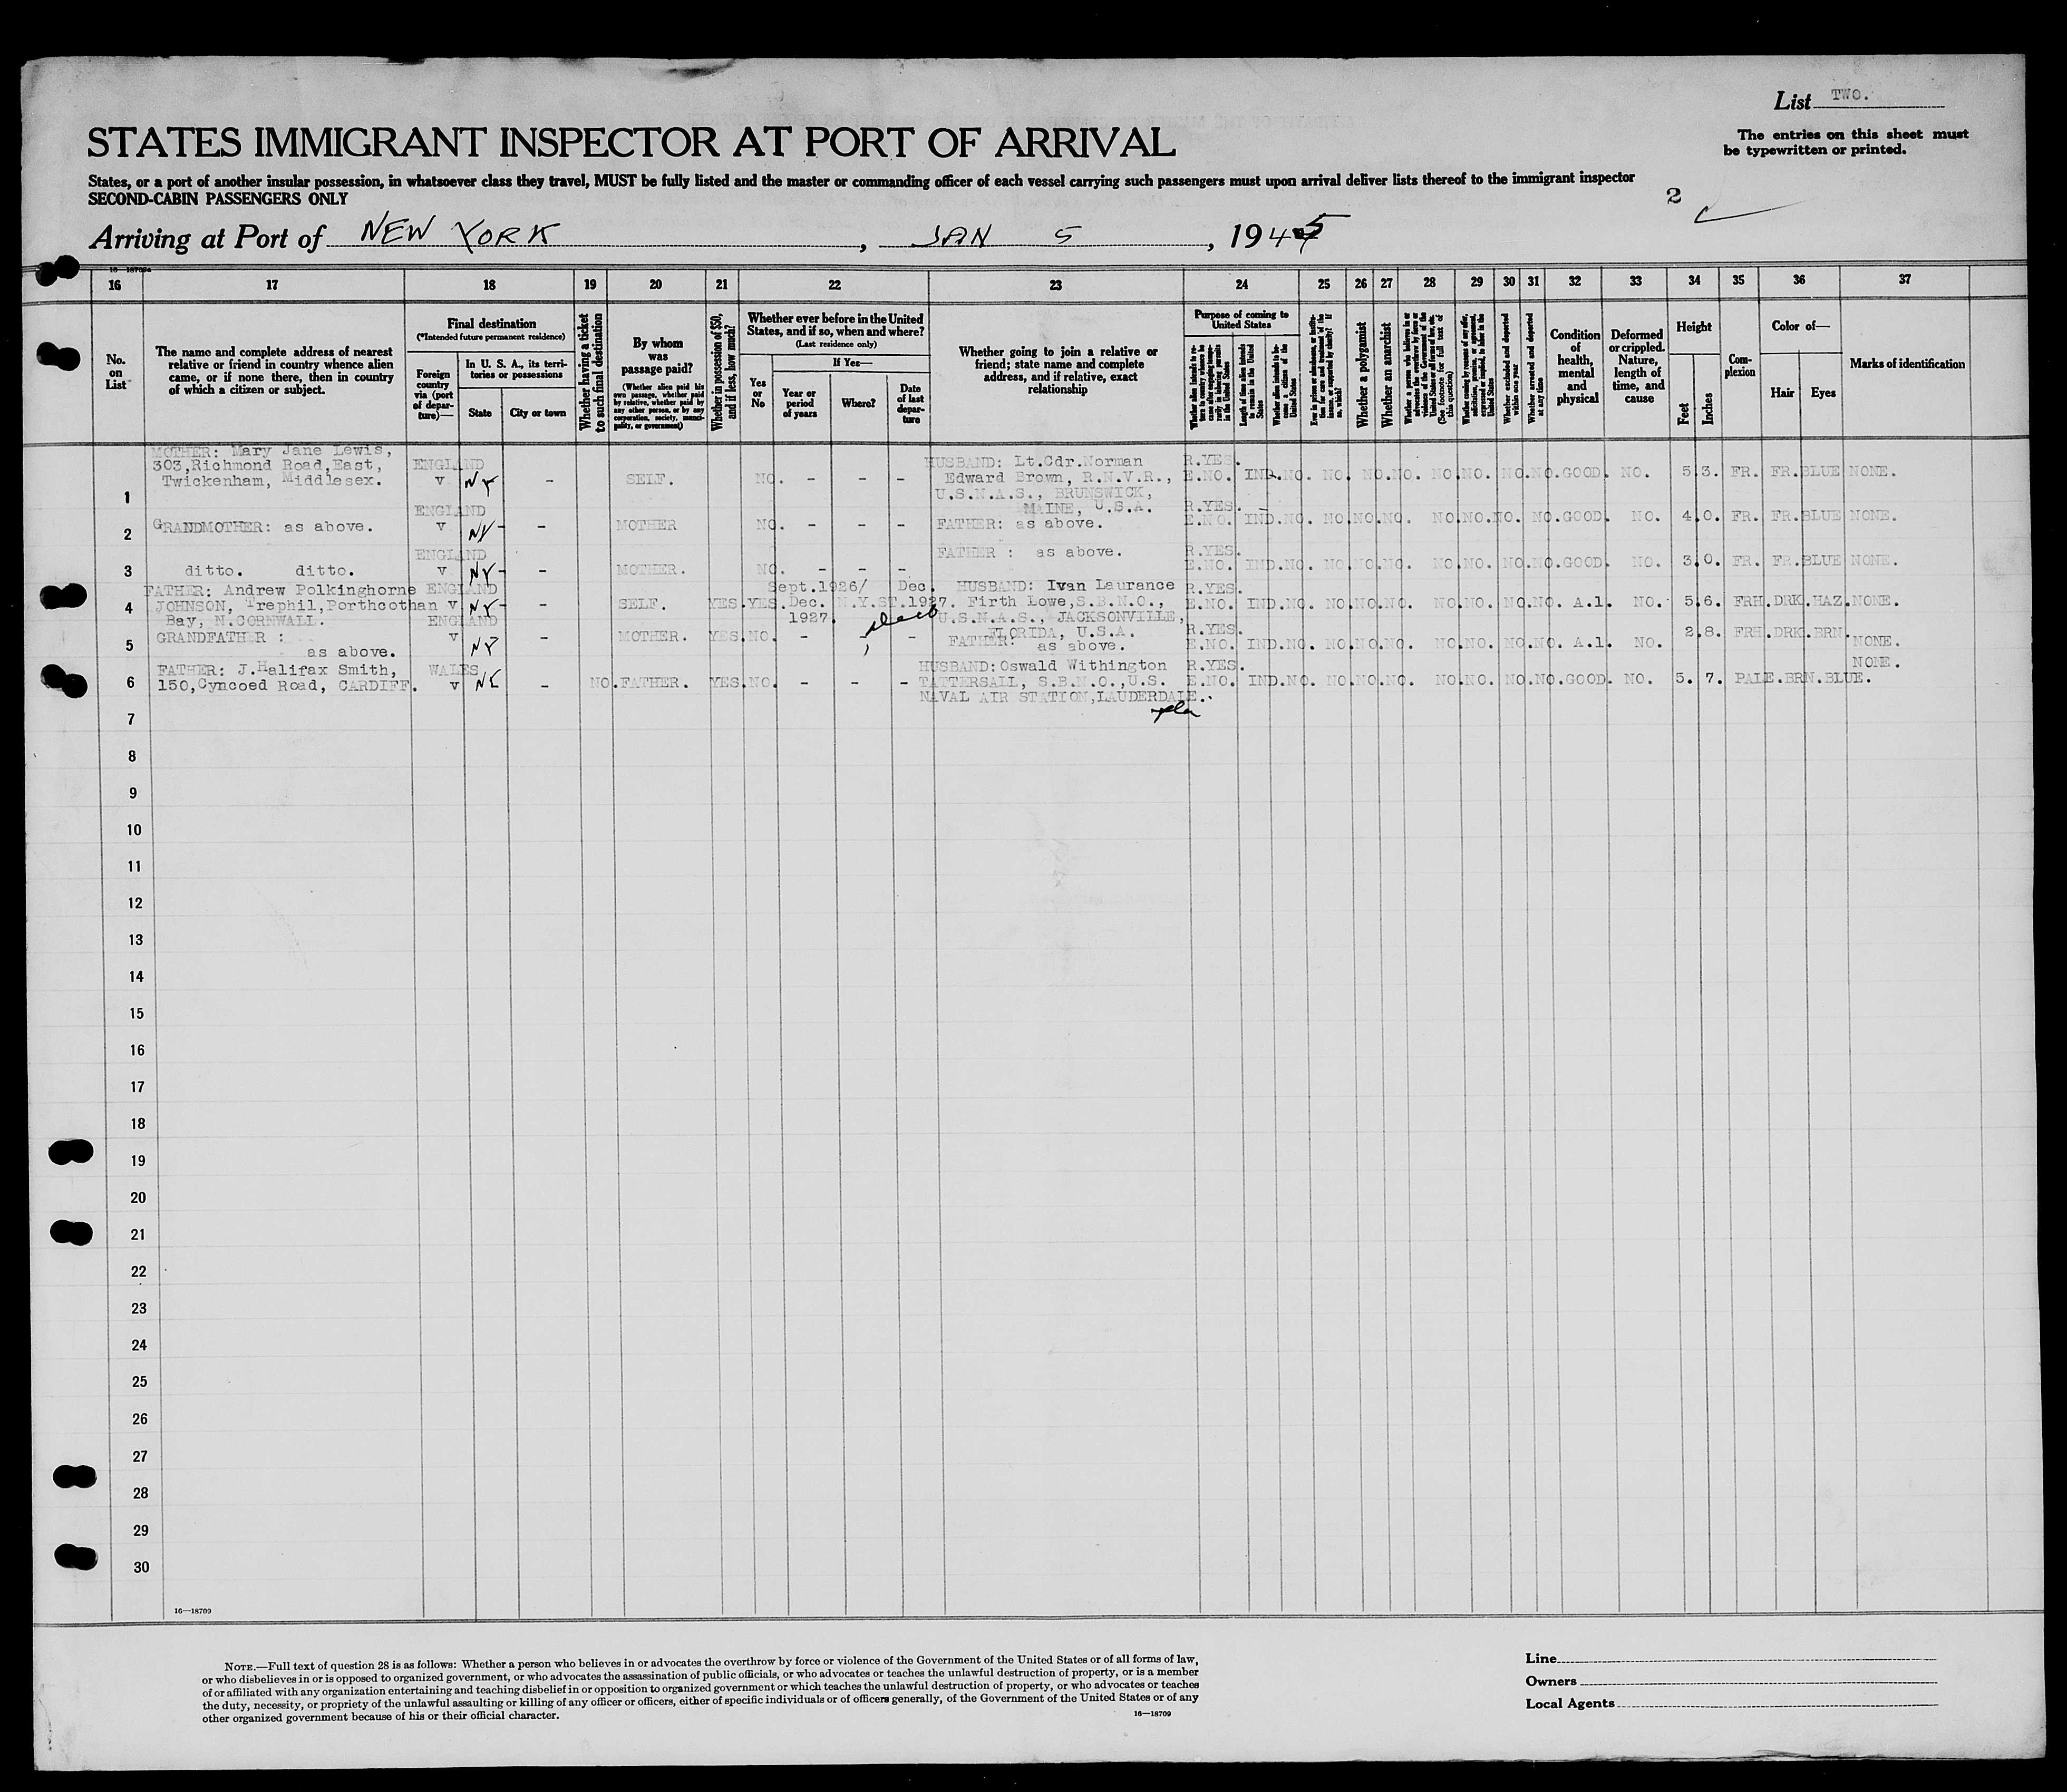 List TWO.
STATES IMMIGRANT INSPECTOR AT PORT OF ARRIVAL
The entries on this sheet must
be typewritten or printed.
States, or a port of another insular possession, in whatsoever class they travel, MUST be fully listed and the master or commanding officer of each vessel carrying such passengers must upon arrival deliver lists thereof to the immigrant inspector
SECOND-CABIN PASSENGERS ONLY
2
Arriving at Port of NEW YORK, JAN 5, 1945
16 17 18 19 20 21 22 23 24 25 26 27 28 29 30 31 32 33 34 35 36 37
No. on List
The name and complete address of nearest relative or friend in country whence alien came, or if none there, then in country of which a citizen or subject.
Final destination
(*Intended future permanent residence)
Foreign country via (port of departure)—
In U. S. A., its territories or possessions
State
City or town
Whether having a ticket to such final destination
By whom was passage paid?
(Whether alien paid his own passage, whether paid by relative, whether paid by any other person, or by any corporation, society, municipality, or government)
Whether in possession of $50, and if less, how much?
Whether ever before in the United States, and if so, when and where?
(Last residence only)
Yes or No
If Yes—
Year or period of years
Where?
Date of last departure
Whether going to join a relative or friend; state name and complete address, and if relative, exact relationship
Purpose of coming to United States
Length of time alien intends to remain in the United States
Whether alien intends to become a citizen of the United States
Whether a polygamist
Whether an anarchist
(See footnote for full text of this question)
Whether excluded and deported within one year
Whether arrested and deported at any time
Condition of health, mental and physical
Deformed or crippled. Nature, length of time, and cause
Height
Feet
Inches
Complexion
Color of—
Hair
Eyes
Marks of identification
MOTHER: Mary Jane Lewis,
303,Richmond Road,East,
Twickenham, Middlesex.
1 ENGLAND v NY - SELF. NO. - - - HUSBAND: Lt.Cdr.Norman
Edward Brown, R.N.V.R.,
U.S.N.A.S., BRUNSWICK,
MAINE, U.S.A.
R.YES. E.NO. IND. NO. NO. NO. NO. NO. NO. NO. NO. GOOD. NO. 5 3. FR. FR. BLUE NONE.
2 GRANDMOTHER: as above. ENGLAND v NY - MOTHER NO. - - - FATHER: as above. R.YES. E.NO. IND. NO. NO. NO. NO. NO. NO. NO. NO. GOOD. NO. 4 0. FR. FR. BLUE NONE.
3 ditto. ditto. ENGLAND v NY - MOTHER. NO. - - - FATHER : as above. R.YES. E.NO. IND. NO. NO. NO. NO. NO. NO. NO. NO. GOOD. NO. 3 0. FR. FR. BLUE NONE.
FATHER: Andrew Polkinghorne
4 JOHNSON, Trephil,Porthcothan
Bay, N.CORNWALL.
ENGLAND v NY - SELF. YES. YES. Sept.1926/ Dec. 1927. N.Y.ST. Dec. 1927. HUSBAND: Ivan Laurance
Firth Lowe,S.B.N.O.,
U.S.N.A.S., JACKSONVILLE,
FLORIDA, U.S.A.
R.YES. E.NO. IND. NO. NO. NO. NO. NO. NO. NO. NO. A.1. NO. 5 6. FRH. DRK. HAZ. NONE.
5 GRANDFATHER :
as above.
ENGLAND v NY - MOTHER. YES. NO. - - - FATHER: as above. R.YES. E.NO. IND. NO. NO. NO. NO. NO. NO. NO. NO. A.1. NO. 2 8. FRH. DRK. BRN. NONE.
FATHER: J.Halifax Smith,
6 150,Cyncoed Road, CARDIFF.
WALES v - NO. FATHER. YES. NO. - - - HUSBAND: Oswald Withington
TATTERSALL, S.B.N.O.,U.S.
NAVAL AIR STATION,LAUDERDALE.
R.YES. E.NO. IND. NO. NO. NO. NO. NO. NO. NO. NO. GOOD. NO. 5. 7. PALE. BRN. BLUE. NONE.
7
8
9
10
11
12
13
14
15
16
17
18
19
20
21
22
23
24
25
26
27
28
29
30
16—18709
NOTE.—Full text of question 28 is as follows: Whether a person who believes in or advocates the overthrow by force or violence of the Government of the United States or of all forms of law,
or who disbelieves in or is opposed to organized government, or who advocates the assassination of public officials, or who advocates or teaches the unlawful destruction of property, or is a member
of or affiliated with any organization entertaining and teaching disbelief in or opposition to organized government or which teaches the unlawful destruction of property, or who advocates or teaches
the duty, necessity, or propriety of the unlawful assaulting or killing of any officer or officers, either of specific individuals or of officers generally, of the Government of the United States or of any
other organized government because of his or their official character.
16—18709
Line
Owners
Local Agents